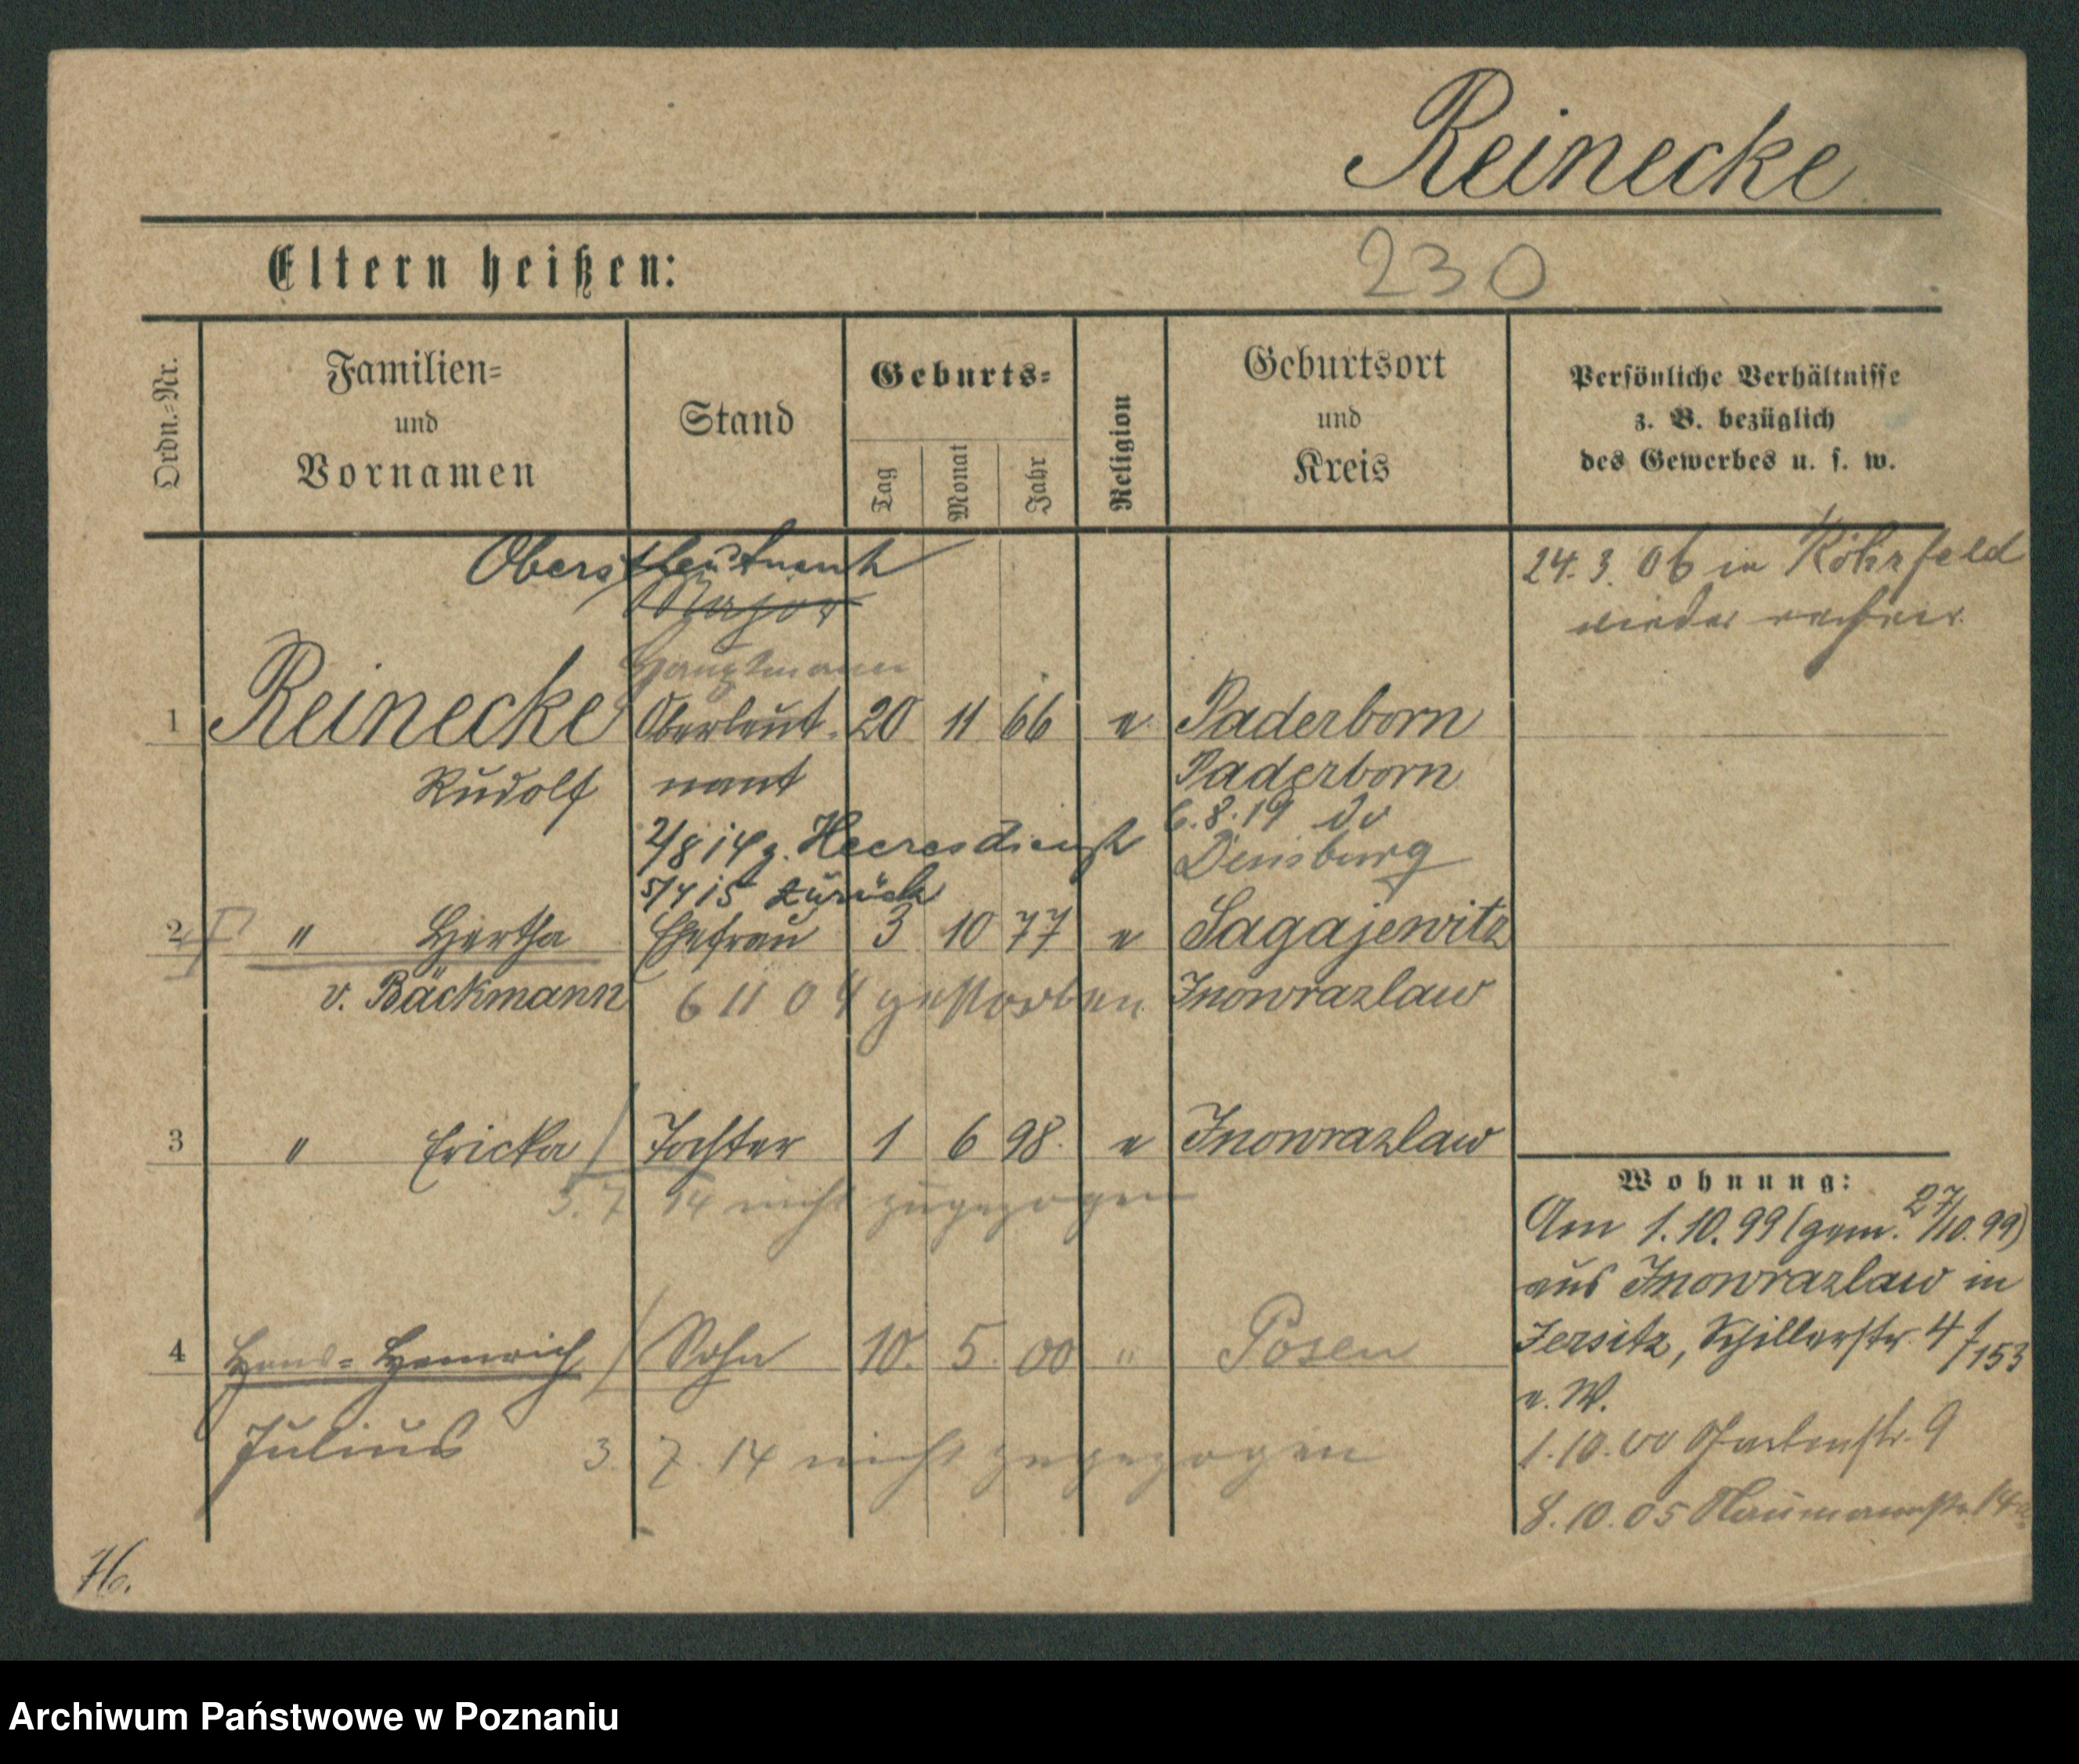 Reinecke
Eltern heißen:
230
Ordn.=Nr.
Familien=
und
Vornamen
Stand
Geburts=
Tag
Monat
Jahr
Religion
Geburtsort
und
Kreis
Persönliche Verhältnisse
z. B. bezüglich
des Gewerbes u. s. w.
Oberstleutnant
Major
Hauptmann
24. 3. 06 in
wieder
1 Reinecke Oberleut- 20 11 66 e. Paderborn
Rudolf nant Paderborn
2/8 14 z. Heeresdienst
6. 8. 19
5/4 15 zurück
2 " Hertha Ehefrau 3 10 77 e Sagajewitz
v. Bäckmann 6 11 04 gestorben Inowrazlaw
3 " Ericka Tochter 1 6 98. e Inowrazlaw
3. 7 14 nicht zugezogen
Wohnung:
Am 1. 10. 99 (gem. 27/10. 99)
aus Inowrazlaw in
Jersitz, Schillerstr. 4
e. W.
4 Hans=Heinrich Sohn 10. 5. 00 " Posen
Julius 3. 7. 14 nicht zugezogen
1. 10. 00 Gartenstr. 9
8. 10. 05 Naumannstr. 14
Archiwum Państwowe w Poznaniu